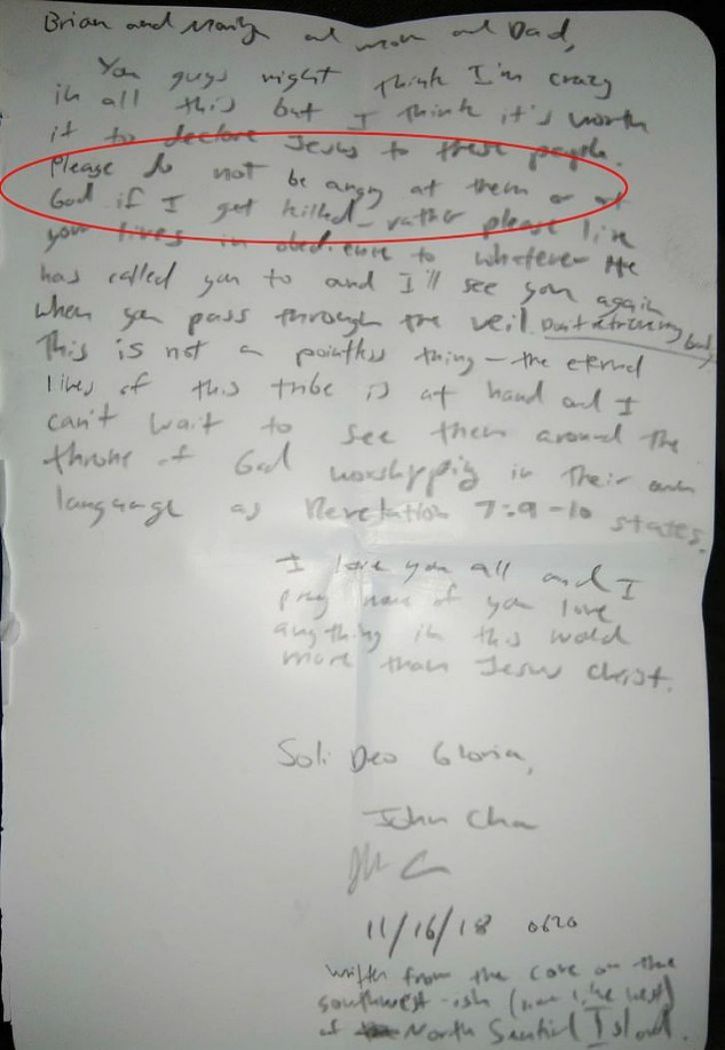 Brian and Marilyn and mom and Dad,
You guys might think I'm crazy
in all this but I think it's worth
it to declare Jesus to these people.
Please do not be angry at them or at
God if I get killed - rather please live
your lives in obedience to whatever He
has called you to and I'll see you again
when you pass through the veil. Don't retrieve my body
This is not a pointless thing - the eternal
lives of this tribe is at hand and I
can't wait to see them around the
throne of God worshipping in their own
language as Revelation 7:9-10 states.
I love you all and I
pray none of you love
anything in this world
more than Jesus Christ.
Soli Deo Gloria,
John Chau
11/16/18 0620
written from the cove on the
southwest-ish (more like west)
of North Sentinel Island.